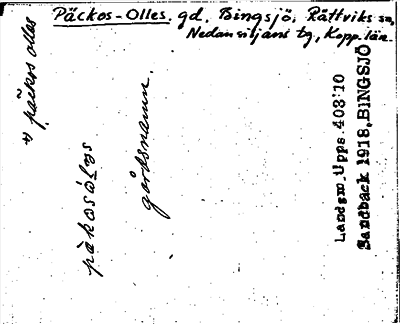 Päckos-Olles. gd. Bingsjö, Rättviks sn,
Nedansiljans tg., Kopp. län.
päckos olles
pàkosól̥ɩs
gårdsnamn.
Landsm. Upps. 403:10
Sandback 1918, BINGSJÖ